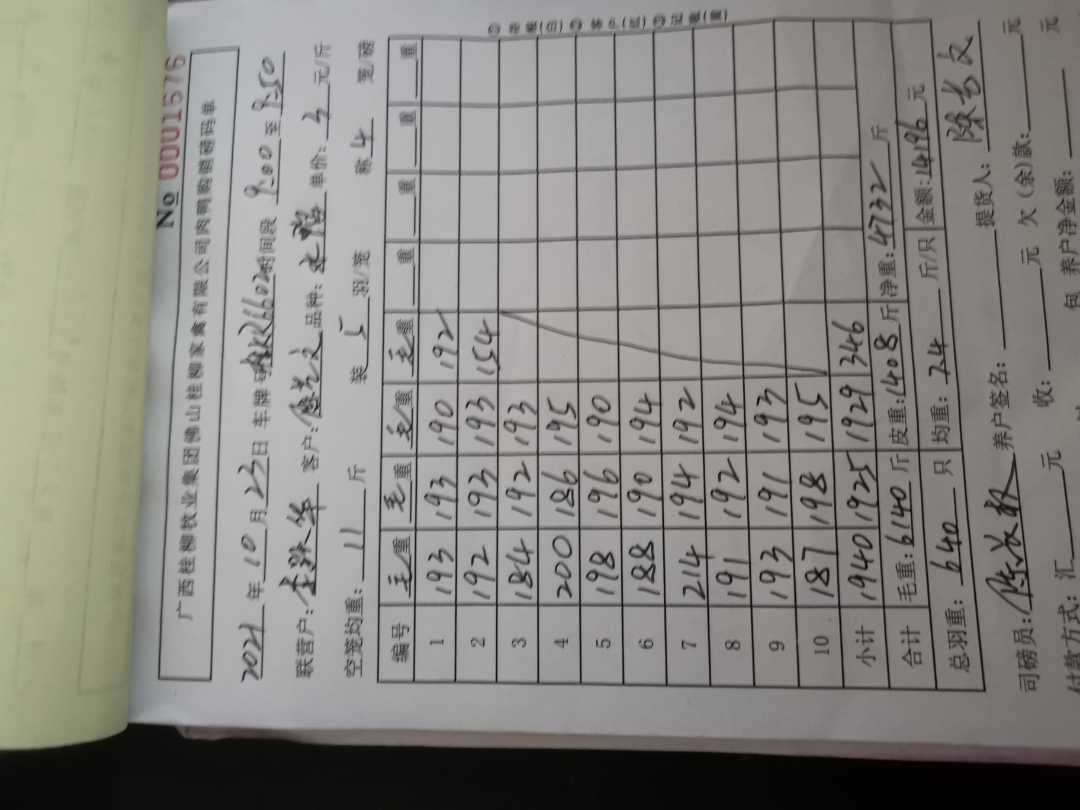 No 0001676
广西桂柳牧业集团佛山桂柳家禽有限公司肉鸭购销磅码单
2021 年 10 月 23 日 车牌号 时间段 9:00 至 9:50
联营户: 李跃华 客户: 品种: 单价: 3 元/斤
空笼均重: 11 斤 装 5 羽/笼 称 4 笼/磅
编号 毛重 毛重 毛重 毛重 重 重 重 重
1 193 193 190 192
2 192 193 193 154
3 184 192 193
4 200 186 195
5 198 196 190
6 188 190 194
7 214 194 192
8 191 192 194
9 193 191 193
10 187 198 195
小计 1940 1925 1929 346
合计 毛重: 6140 斤 皮重: 1408 斤 净重: 4732 斤
总羽重: 640 只 均重: 7.4 斤/只 金额: 14196 元
司磅员: 养户签名: 提货人:
付款方式: 汇 元 收: 元 欠(余)款: 元
包 养户净金额: 元